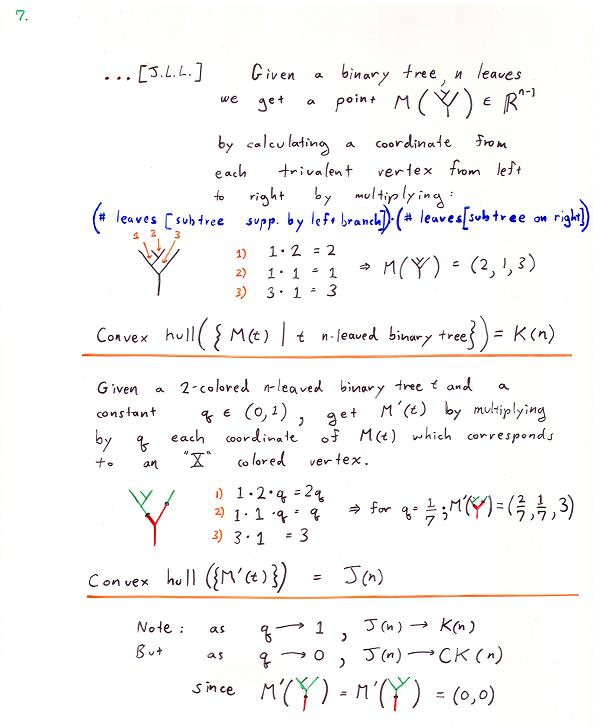 7.
... [J.L.L.] Given a binary tree, n leaves
we get a point M( ) ∈ ℝⁿ⁻¹
by calculating a coordinate from
each trivalent vertex from left
to right by multiplying:
(# leaves [subtree supp. by left branch])·(# leaves[subtree on right])
1 2 3
1) 1·2 = 2
2) 1·1 = 1 ⇒ M( ) = (2,1,3)
3) 3·1 = 3
Convex hull({M(t) | t n-leaved binary tree}) = K(n)
Given a 2-colored n-leaved binary tree t and a
constant q ∈ (0,1), get M'(t) by multiplying
by q each coordinate of M(t) which corresponds
to an "X" colored vertex.
1) 1·2·q = 2q
2) 1·1·q = q ⇒ for q = 1/7; M'( ) = (2/7, 1/7, 3)
3) 3·1 = 3
Convex hull ({M'(t)}) = J(n)
Note: as q → 1, J(n) → K(n)
But as q → 0, J(n) → CK(n)
since M'( ) = M'( ) = (0,0)